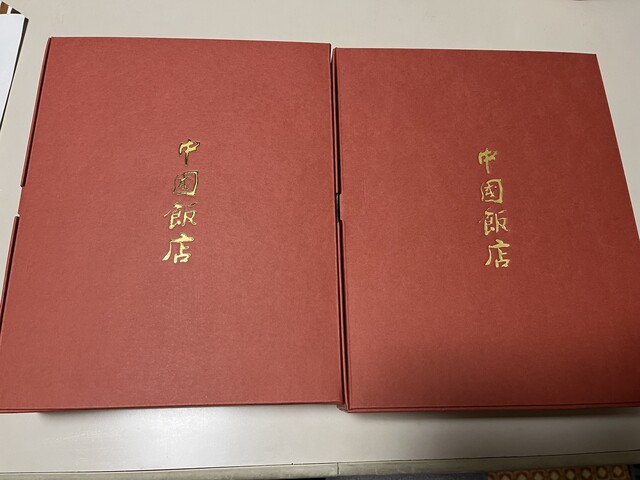 中國飯店
中國飯店